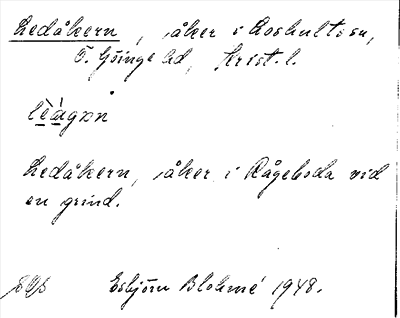 Ledåkern, åker i Loshult sn,
Ö. Göinge hd, Krist. l.
lèàgxn
Ledåkern, åker i Rågeboda vid
en grind.
Esbjörn Blohmé 1948.